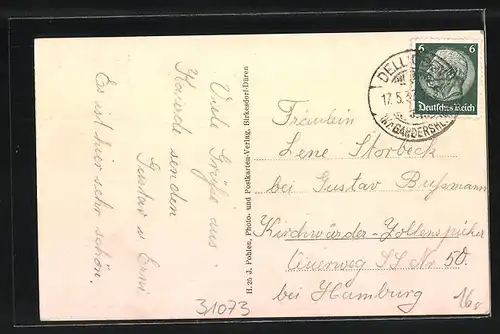 Viele Grüße aus
senden
Gustav u Erni
Es ist hier sehr schön.
H. 25 J. Pohlen, Photo- und Postkarten-Verlag, Birkesdorf-Düren
6 6
Deutsches Reich
17.5.
GANDERSHEIM
Fräulein
Lene Storbeck
bei Gustav Bußmann
Kirchwärder-Zollenspieker
Nr 50.
bei Hamburg
31073